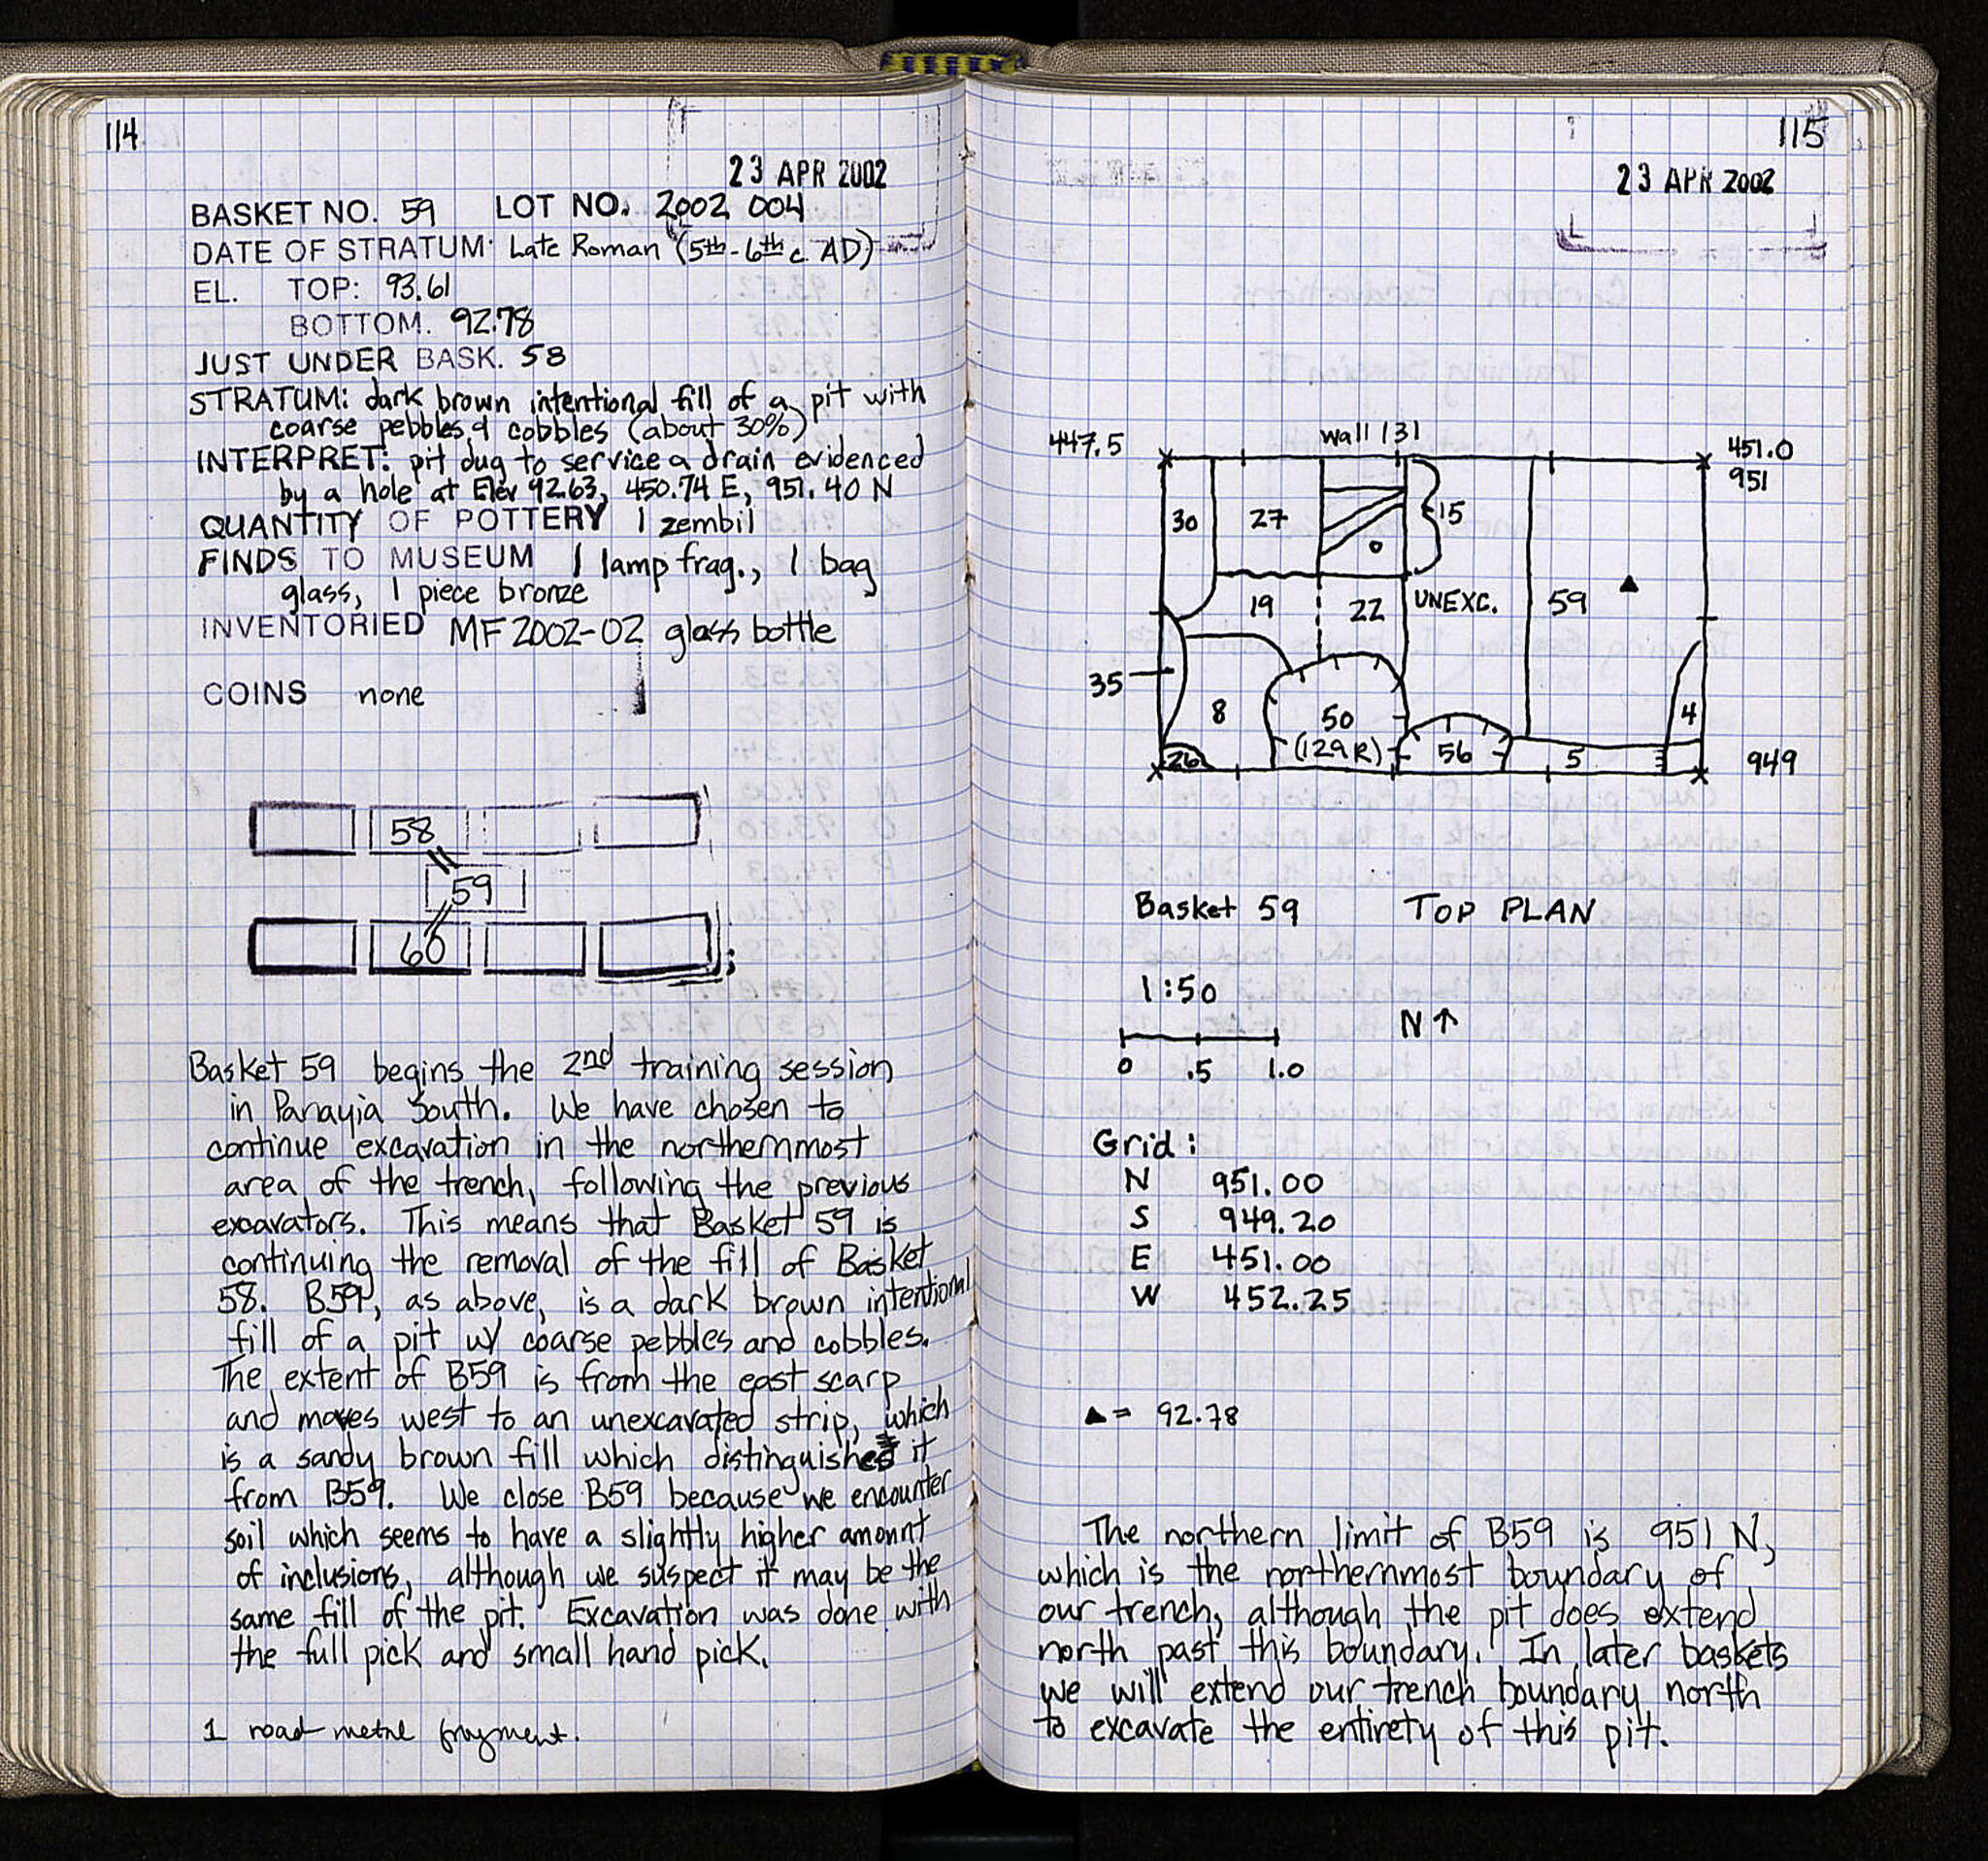 114
23 APR 2002
BASKET NO. 59 LOT NO. 2002 004
DATE OF STRATUM: Late Roman (5th-6th c. AD)
EL. TOP: 93.61
BOTTOM. 92.78
JUST UNDER BASK. 58
STRATUM: dark brown intentional fill of a pit with
coarse pebbles & cobbles (about 30%)
INTERPRET: pit dug to service a drain evidenced
by a hole at Elev 92.63, 450.74 E, 951.40 N
QUANTITY OF POTTERY 1 zembil
FINDS TO MUSEUM 1 lamp frag., 1 bag
glass, 1 piece bronze
INVENTORIED MF 2002-02 glass bottle
COINS none
58
59
60
Basket 59 begins the 2nd training session
in Panayia South. We have chosen to
continue excavation in the northernmost
area of the trench, following the previous
excavators. This means that Basket 59 is
continuing the removal of the fill of Basket
58. B59, as above, is a dark brown intentional
fill of a pit w/ coarse pebbles and cobbles.
The extent of B59 is from the east scarp
and moves west to an unexcavated strip, which
is a sandy brown fill which distinguishes it
from B59. We close B59 because we encounter
soil which seems to have a slightly higher amount
of inclusions, although we suspect it may be the
same fill of the pit. Excavation was done with
the full pick and small hand pick.
1 road metal fragment.
115
23 APR 2002
447.5 wall 131 451.0
951
30 27 15
19 22 UNEXC. 59
35
8 50 4
(129R) 56 5
26 949
Basket 59 TOP PLAN
1:50
N ↑
0 .5 1.0
Grid:
N 951.00
S 949.20
E 451.00
W 452.25
▲ = 92.78
The northern limit of B59 is 951 N,
which is the northernmost boundary of
our trench, although the pit does extend
north past this boundary. In later baskets
we will extend our trench boundary north
to excavate the entirety of this pit.